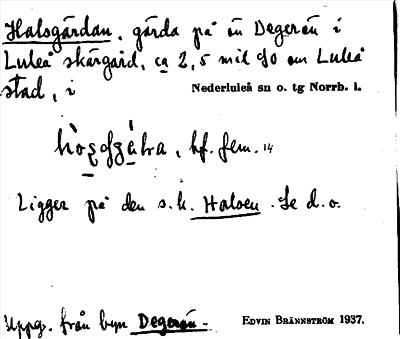 Halsgårdan, gärda på ön Degerön i
Luleå skärgård, ca 2,5 mil SO om Luleå
stad, i Nederluleå sn o. tg Norrb. l.
bf. fem. 14
Ligger på den s.k. Halsen. Se d.o.
Uppg. från byn Degerön. EDVIN BRÄNNSTRÖM 1937.